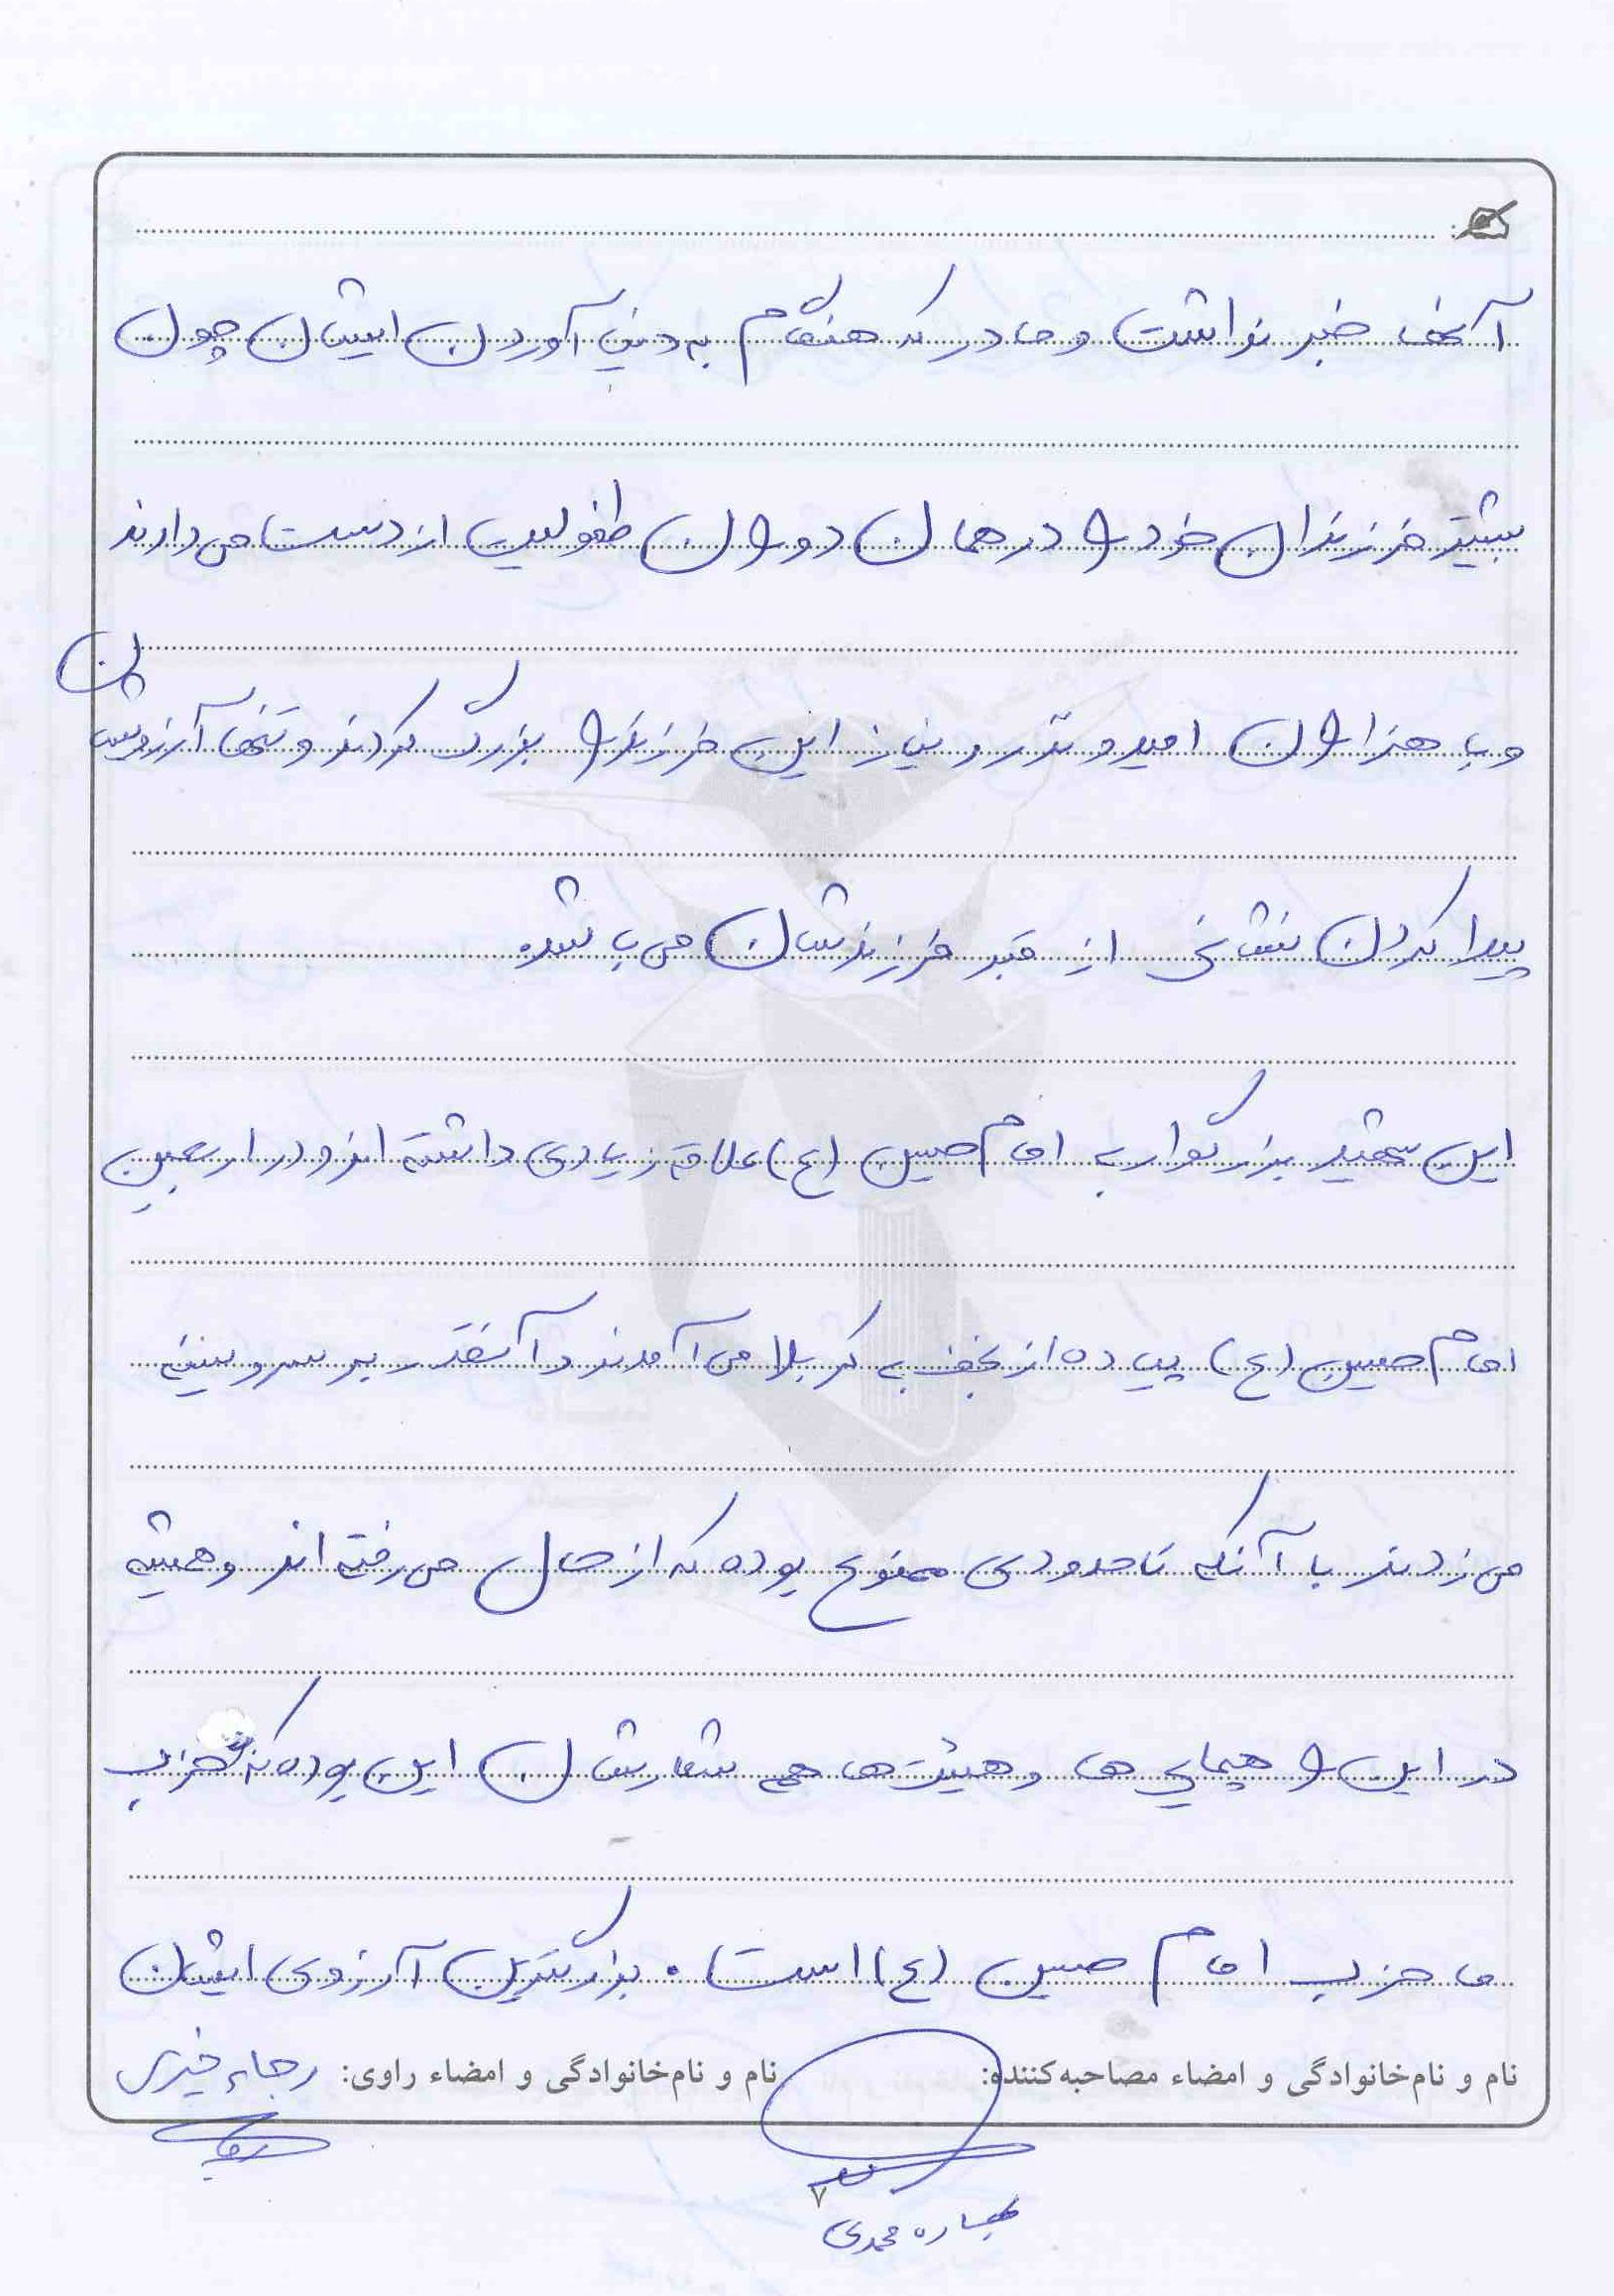 آنها خبر نداشت و مادر که هنگام به دنیا آوردن ایشان چون
بیشتر فرزندان خود را در همان دوران طفولیت از دست می دادند
و با هزاران امید و نذر و نیاز این فرزند را بزرگ کردند و تنها آرزویشان
پیدا کردن نشانی از قبر فرزندشان می باشد.
این شهید بزرگوار به امام حسین (ع) علاقه زیادی داشته اند و در اربعین
امام حسین (ع) پیاده از نجف به کربلا می آمدند و آنقدر بر سر و سینه
می زدند با آنکه تا حدودی ممنوع بوده که از حال می رفته اند و همیشه
در این راهپمایی ها و هیئت ها هم شعارشان این بوده که حزب
ما حزب امام حسین (ع) است. بزرگترین آرزوی ایشان
نام و نام‌خانوادگی و امضاء مصاحبه‌کننده: نام و نام‌خانوادگی و امضاء راوی: رجاء خیری
۷
محمدی